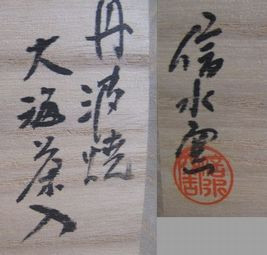 丹波焼
大海茶入
信水窯